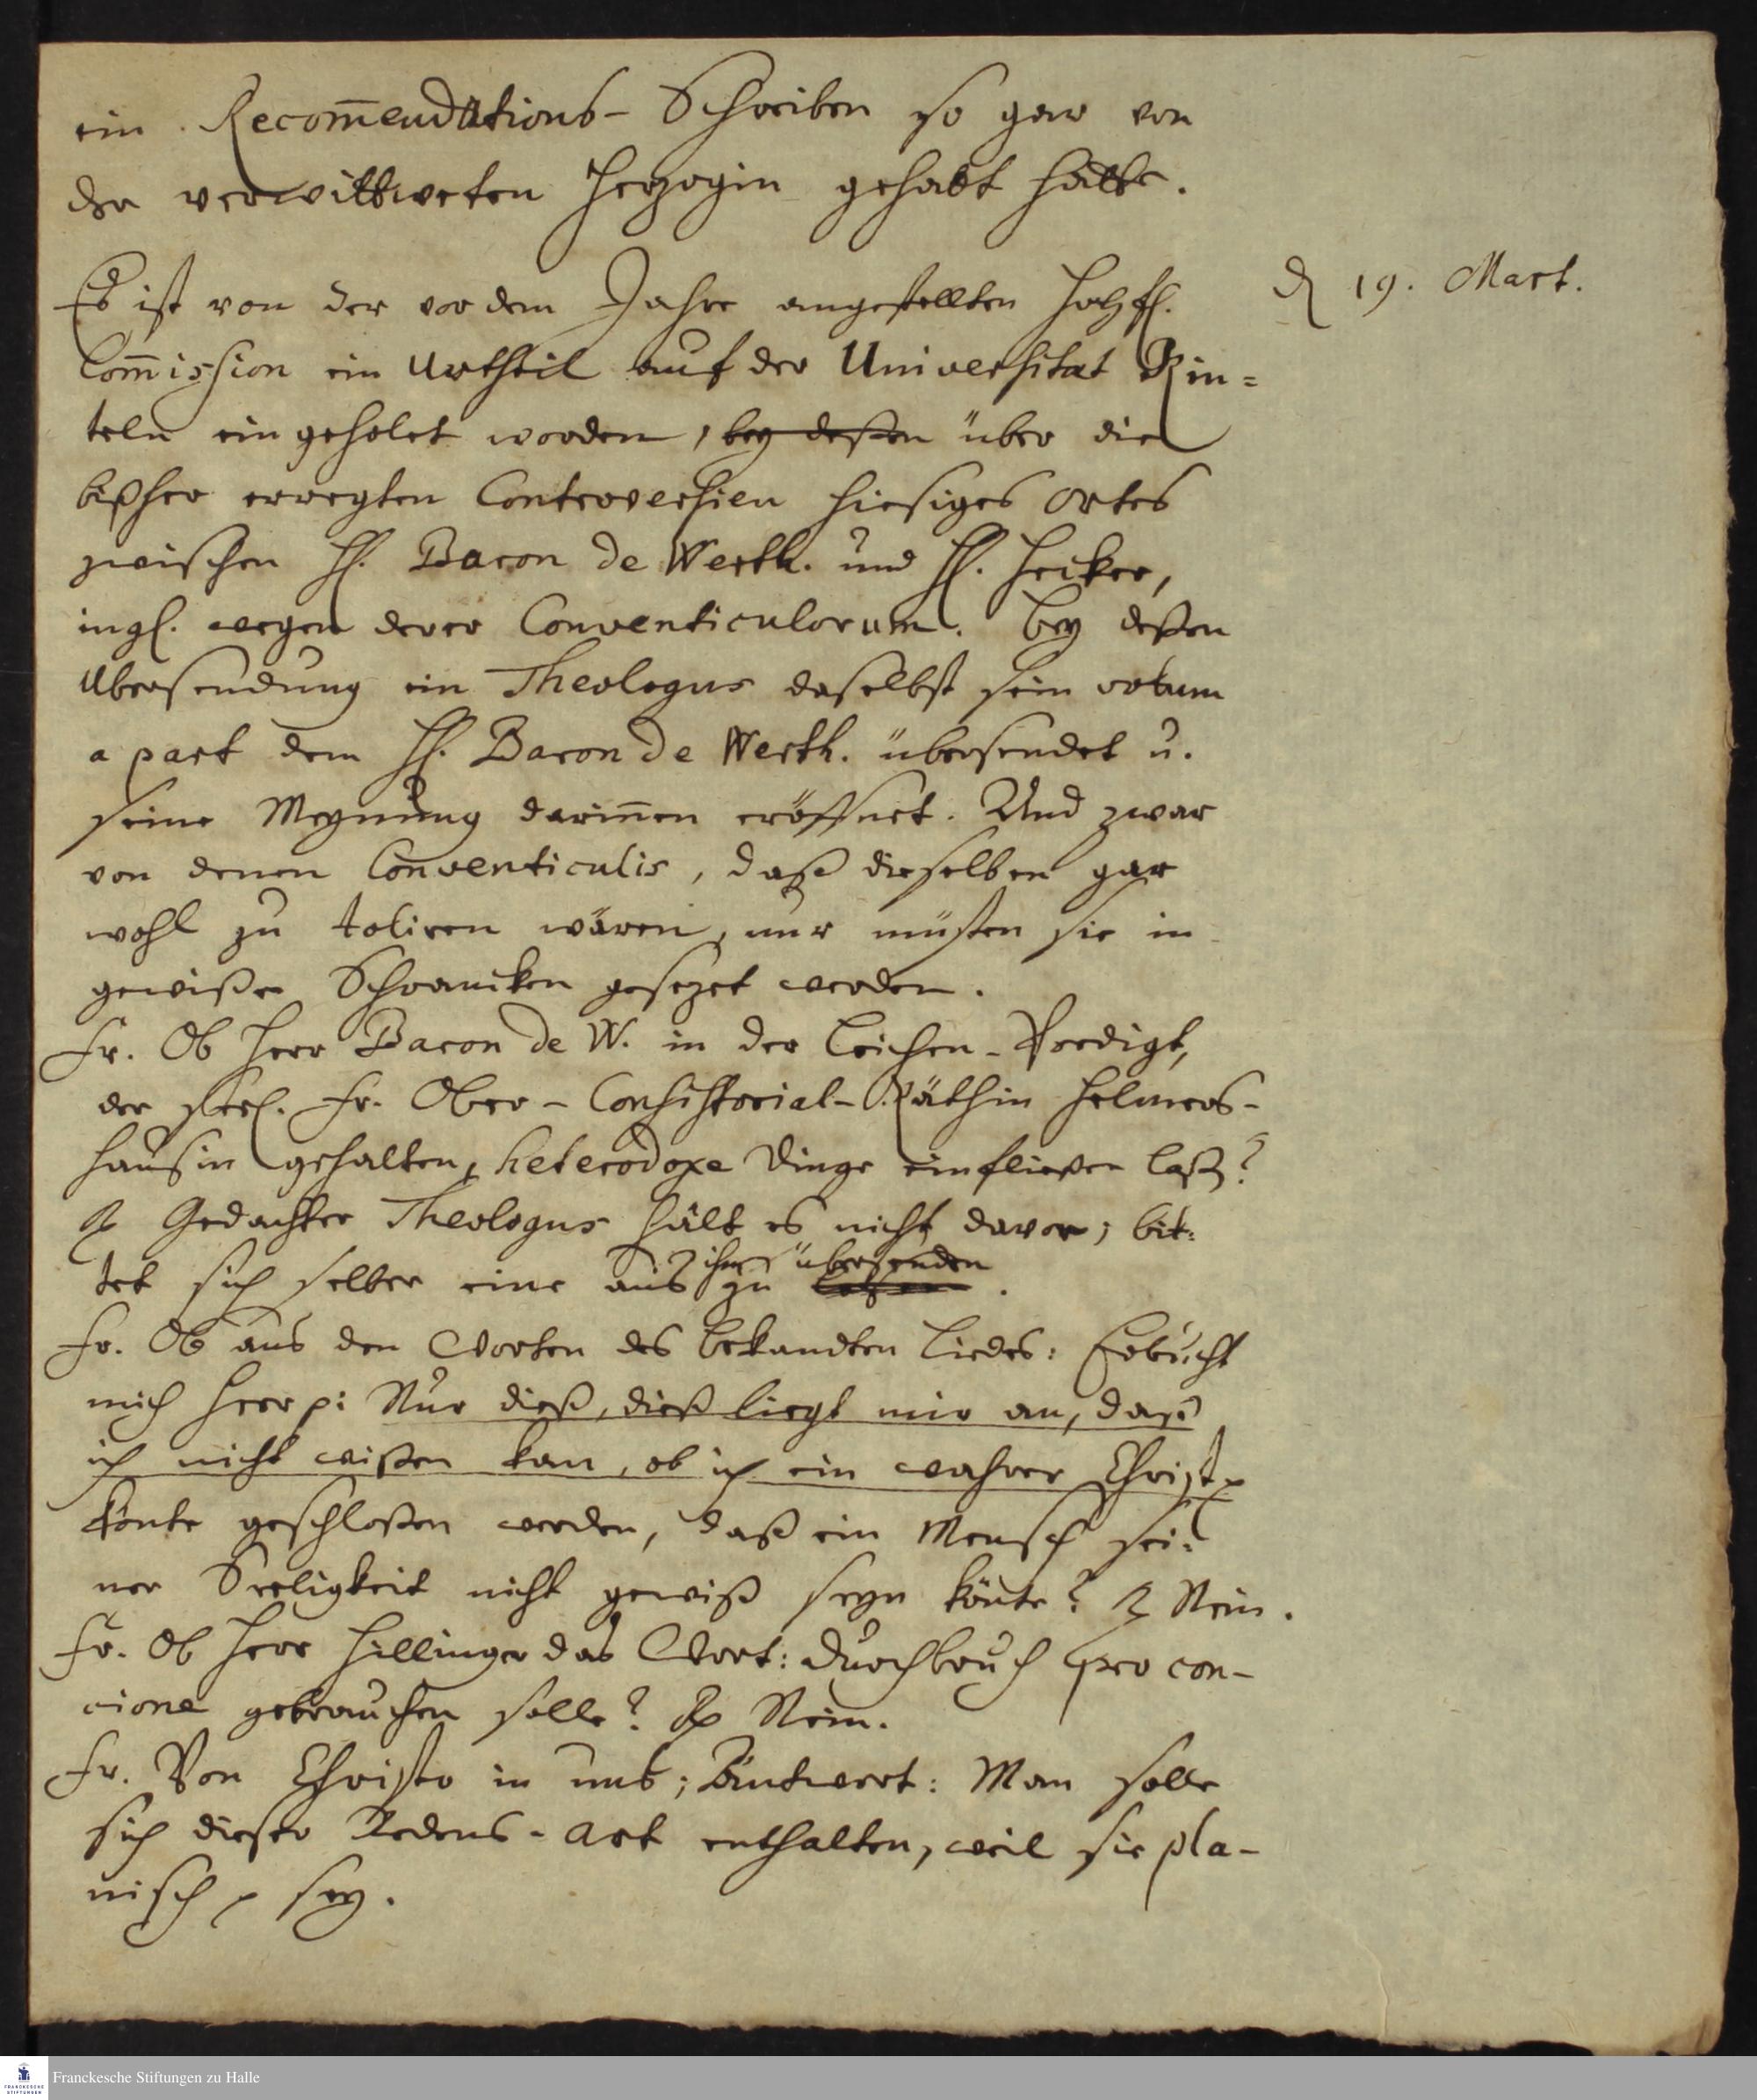 ein Recom̄endations-Schreiben so gar von
der verwittweten Herzogin gehabt hätte.
d 19. Mart.
Es ist von der vor dem Jahre angestellten Hochfl.
Com̄ission ein Urtheil auf der Universitat Rin=
teln eingeholet worden, bey deßen über die
bißher erregten Controversien hiesiges Ortes
zwischen H. Baron de Werth. und H. Hecker,
ingl. wegen derer Conventiculorum. Bey deßen
Ubersendung ein Theologus daselbst sein votum
a part dem H. Baron de Werth. übersendet u.
seine Meynung darin̄en eröffnet. Und zwar
von denen Conventiculis, daß dieselben gar
wohl zu toliren wären, nur müßten sie in
gewiße Schrancken gesezet werden.
Fr. Ob Herr Baron de W. in der Leichen-Predigt,
der seel. Fr. Ober-Consistorial-Räthin Helmers-
hausin gehalten, heterodoxe Dinge einfließen laß?
Rp Gedachter Theologus hält es nicht davor; bit=
tet sich selber eine aus ihm zu übersenden.
Fr. Ob aus den Worten des bekandten Liedes: Erleucht
mich Herr p: Nur dieß, dieß liegt mir an, daß
ich nicht wißen kan, ob ich ein wahrer Christ p
könte geschloßen werden, daß ein Mensch sei=
ner Seeligkeit nicht gewiß seyn könte? Rp Nein.
Fr. Ob Herr Hillinger das Wort: Durchbruch pro con-
cione gebrauchen solle? Rp Nein.
Fr. Von Christo in uns; Antwort: Man solle
sich dieser Redens-Art enthalten, weil sie pla-
nisch p sey.
Franckesche Stiftungen zu Halle
FRANCKESCHE
STIFTUNGEN